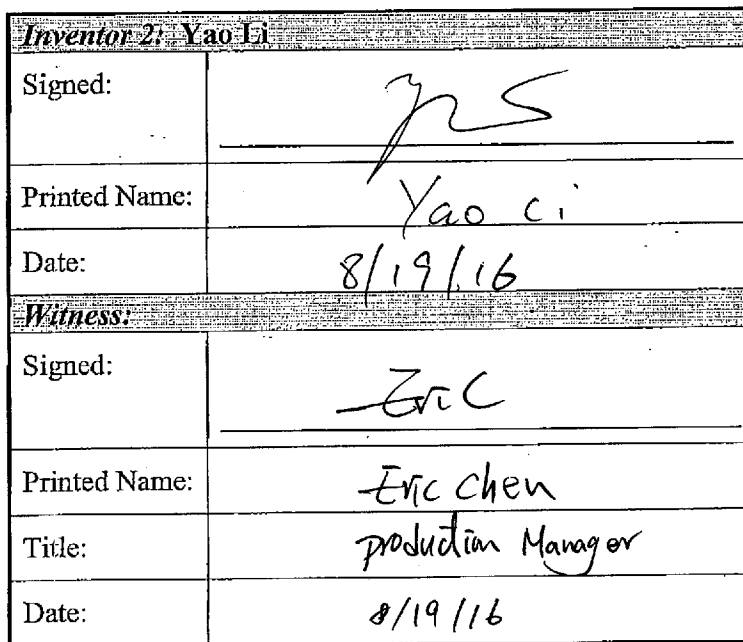 Inventor 2: Yao Li
Signed:
Printed Name: Yao Ci
Date: 8/19/16
Witness:
Signed: Eric C
Printed Name: Eric Chen
Title: production Manager
Date: 8/19/16